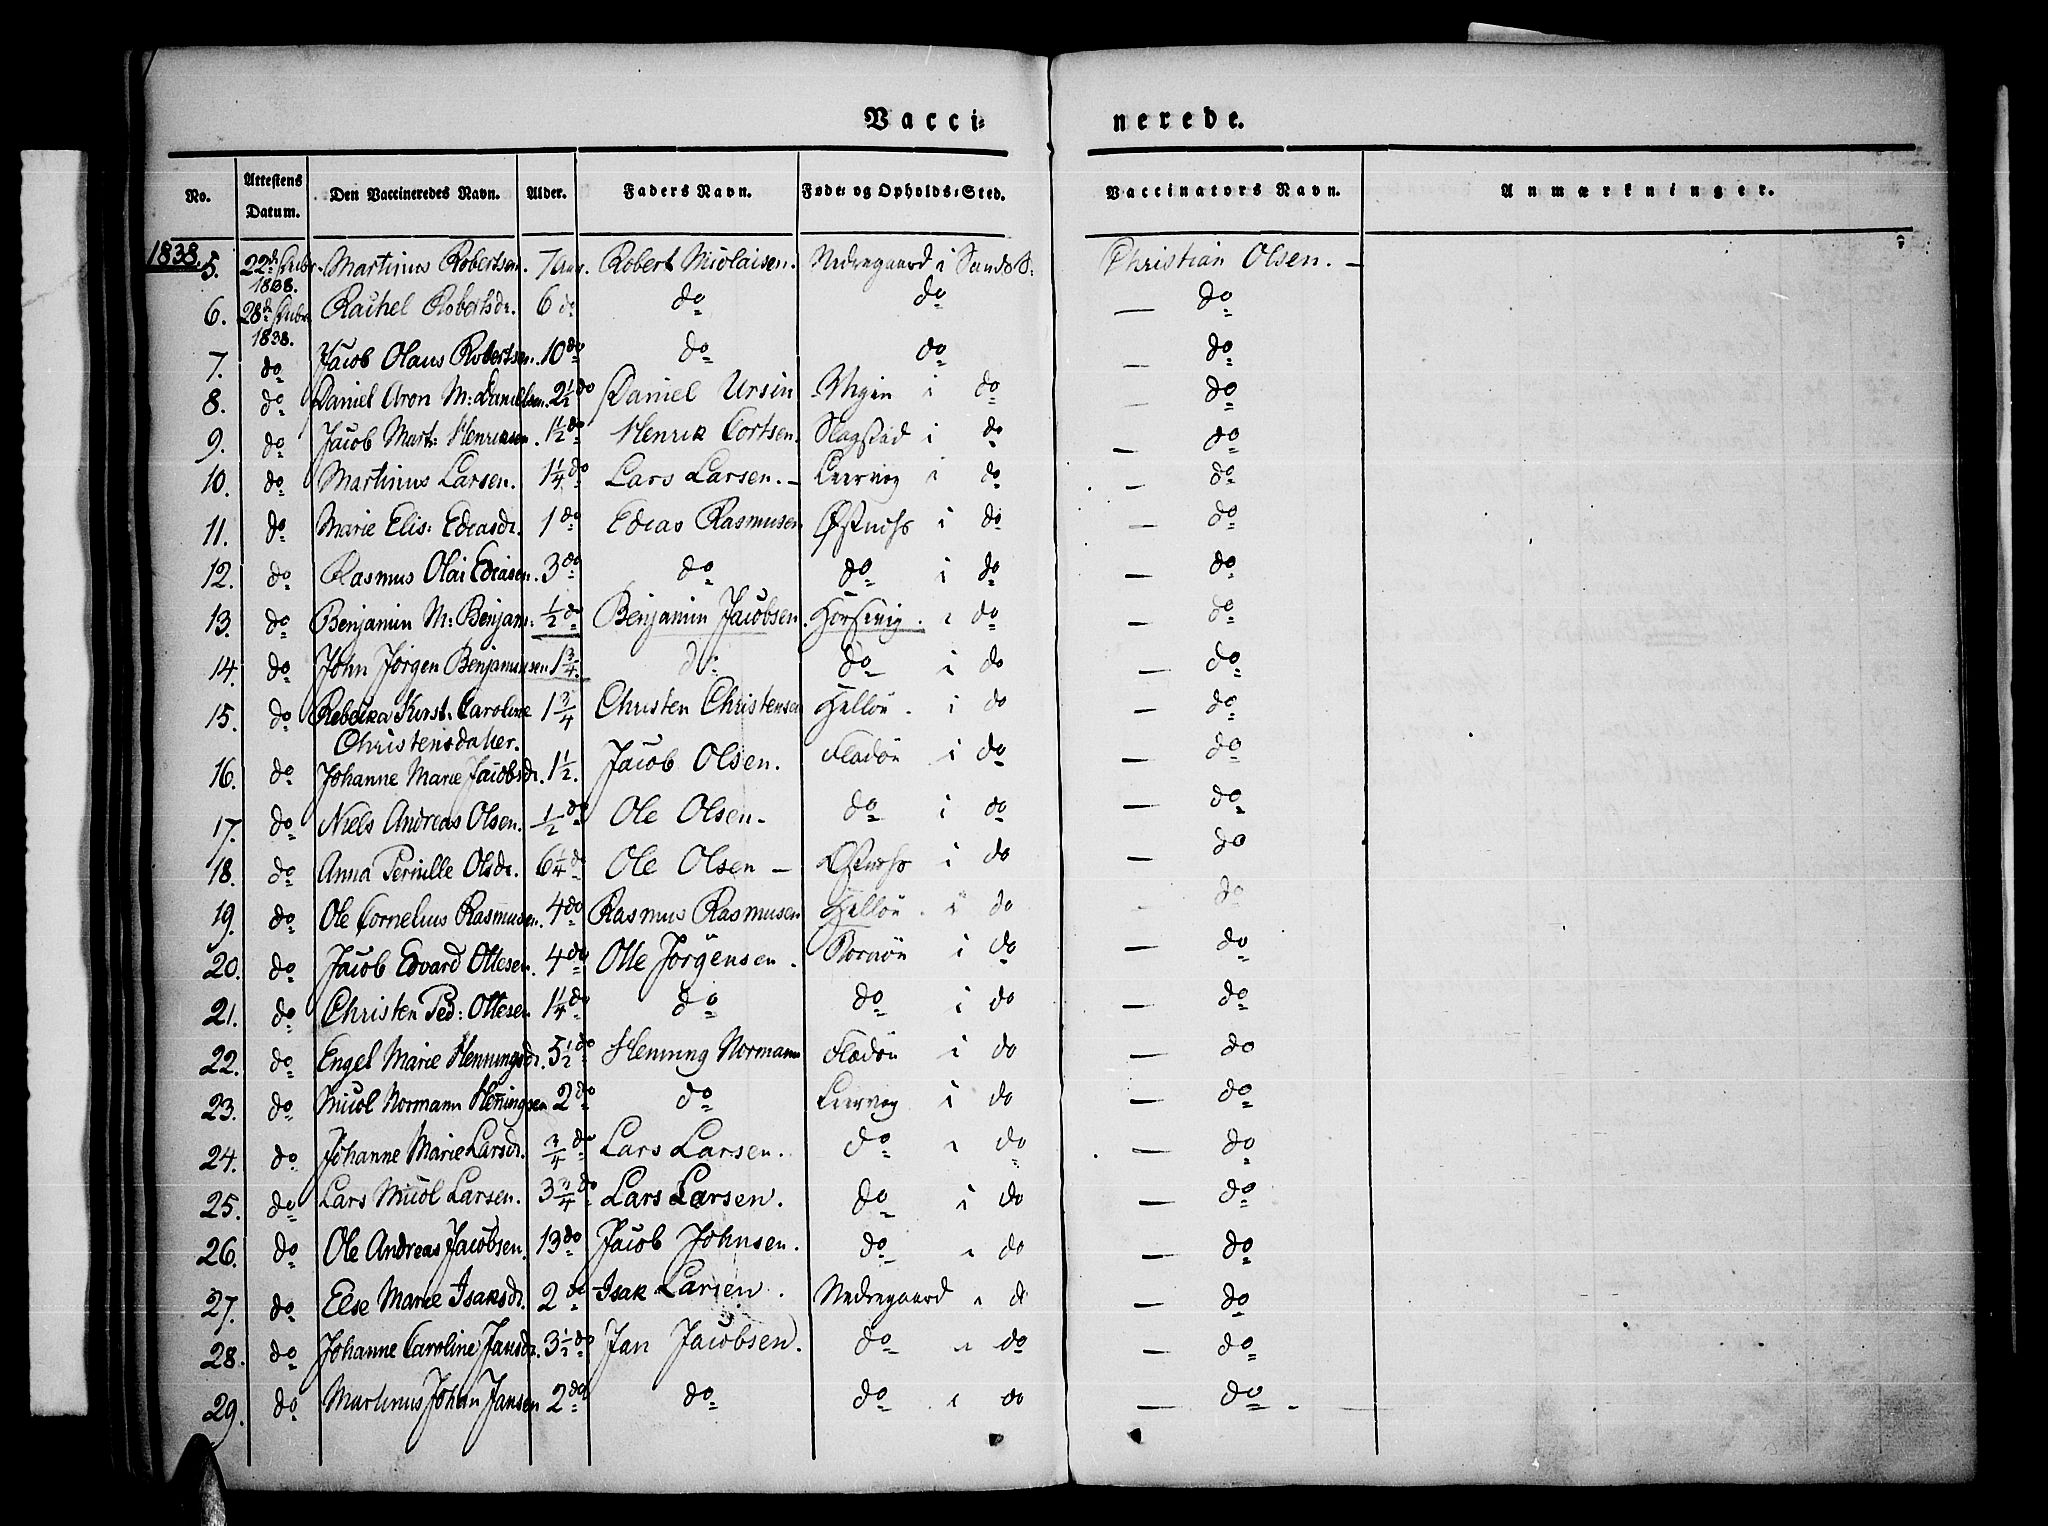 Vacci= nerede.
No. Attestens Datum. Den Vaccineredes Navn. Alder. Faders Navn. Føde= og Opholds=Sted. Vaccinators Navn. Anmærkninger.
1838.
5. 22d 1838. Martinus Robertsen. 7 Aar. Robert Nicolaisen. Nedregaard i Sands S: Christian Olsen. —
6. 28d 1838. Rachel Robertsdr. 6 do do do — do
7. do Jacob Olaus Robertsen. 10 do do do — do
8. do Daniel Aron M: Danielsen. 2½ do Daniel Ursin i do — do
9. do Jacob Mart: Henriksen. 1½ do Henrik Cortsen. Slagstad i do — do
10. do Martinus Larsen. 1¼ do Lars Larsen. — Leervog i do — do
11. do Marie Elis: Edeasdr. 1 do Edeas Rasmusen i do — do
12. do Rasmus Olai Edeasen. 3 do do do i do — do
13. do Benjamin M: Benjam: ½ do Benjamin Jacobsen. i do — do
14. do John Jørgen Benjaminsen 1¾. do do i do — do
15. do Rebecka Kirst. Caroline 1¾ Christen Christensen Helløn. i do — do
Christensdatter.
16. do Johanne Marie Jacobsdr. 1½. Jacob Olsen. Fladøn i do — do
17. do Niels Andreas Olsen. ½ do Ole Olsen. do i do — do
18. do Anna Pernille Olsdr. 6¼ do Ole Olsen — i do — do
19. do Ole Cornelius Rasmusen. 4 do Rasmus Rasmusen Helløn. i do do
20. do Jacob Edvard Ottesen. 4 do Otte Jørgensen. i do — do
21. do Christen Ped: Ottesen 1¼ do do do i do — do
22. do Engel Marie Henningsdr. 5½ do Henning Normann Fladøn i do — do
23. do Nicol Normann Henningsen 2 do do Leervog i do — do
24. do Johanne Marie Larsdr. ¾ do Lars Larsen. do i do — do
25. do Lars Nicol Larsen. 3¾ do Lars Larsen. do i do — do
26. do Ole Andreas Jacobsen. 13 do Jacob Johnsen. do i do — do
27. do Else Marie Isaksdr. 2 do Isak Larsen. Nedregaard i do — do
28. do Johanne Caroline Jansdr. 3½ do Jan Jacobsen. do i do — do
29. do Martinus Johan Jansen 2 do do do i do — do